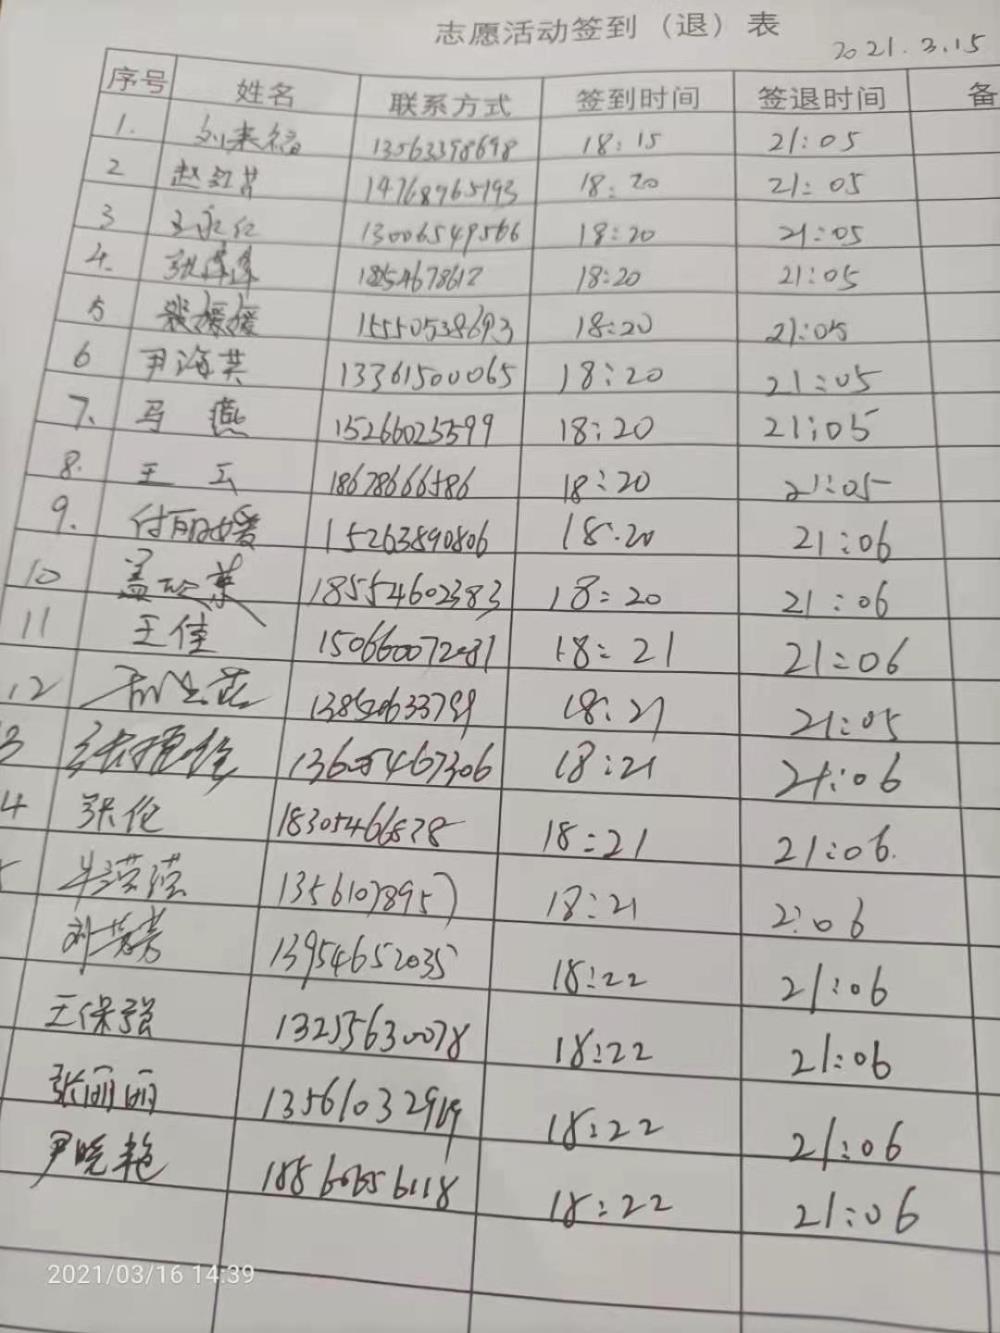 志愿活动签到（退）表
2021.3.15
序号 姓名 联系方式 签到时间 签退时间 备
1. 13563398698 18:15 21:05
2 赵红芹 14768965193 18:20 21:05
3 王永红 13006549566 18:20 21:05
4. 18:20 21:05
5 裴媛媛 15550538693 18:20 21:05
6 尹海英 13361500065 18:20 21:05
7. 马燕 15266025599 18:20 21:05
8. 王云 18678666586 18:20 21:05
9. 付丽媛 15263890806 18:20 21:06
10 18554602383 18:20 21:06
11 王佳 18:21 21:06
12 18:21 21:05
3 18:21 21:06
4 张伦 18:21 21:06.
牛滢滢 13561078957 18:21 2:06
刘芳芳 13954652035 18:22 21:06
王保强 13255630078 18:22 21:06
张丽丽 18:22 21:06
尹晓艳 18:22 21:06
2021/03/16 14:39